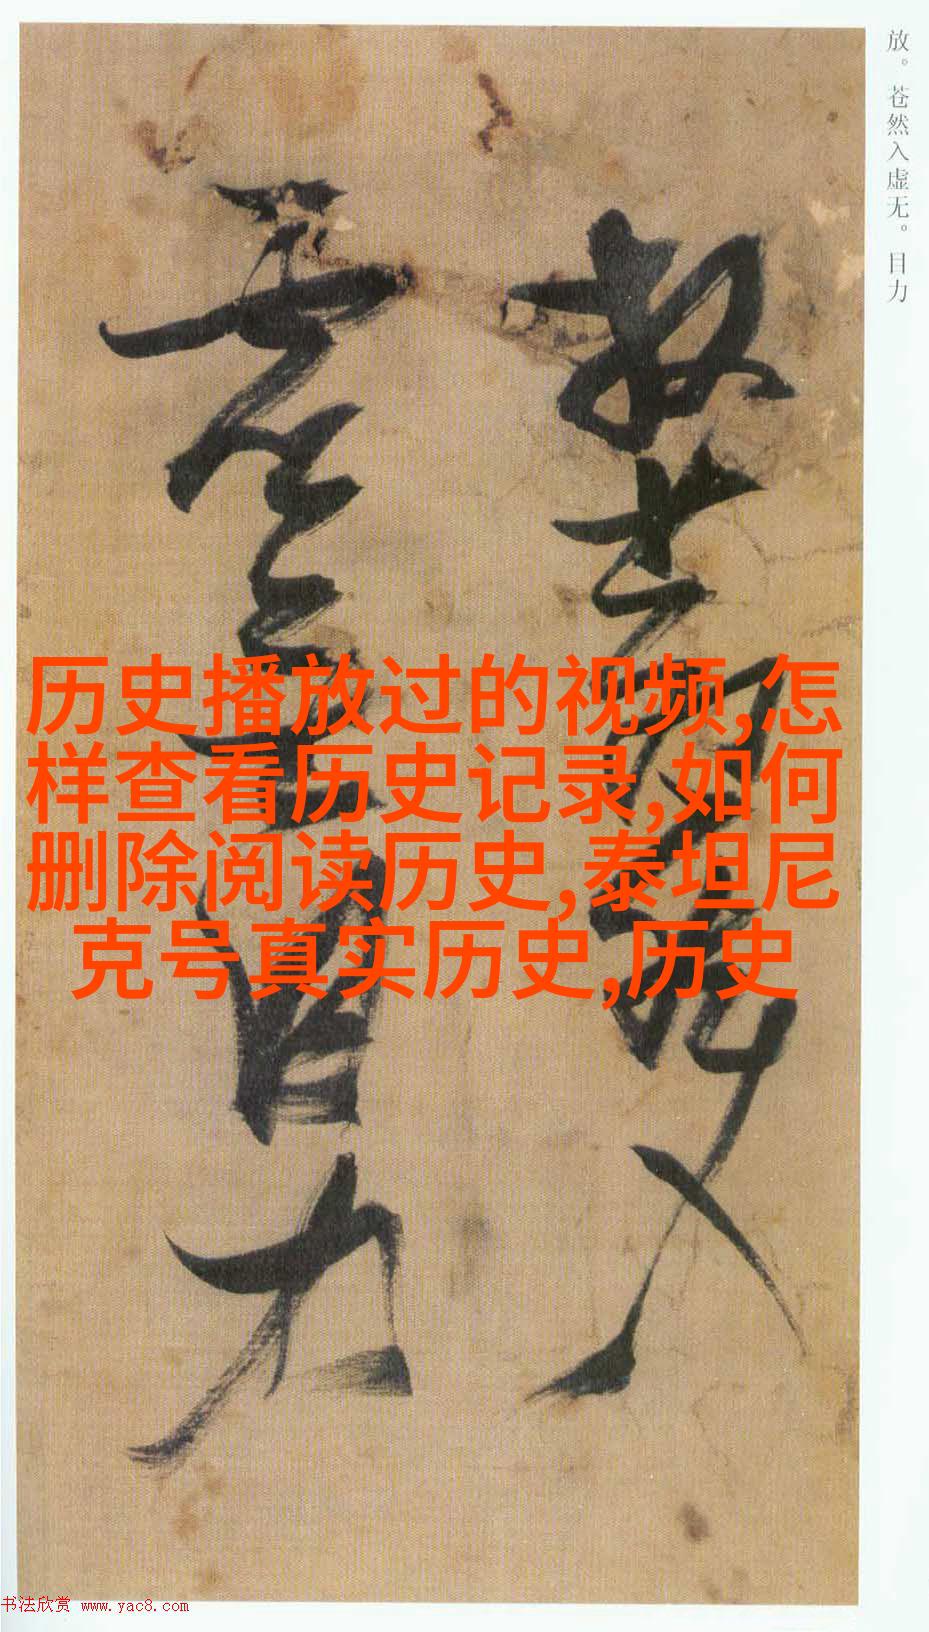 放。苍然入虚无。目力
放苍然入
虚无目力
历史播放过的视频,怎
样查看历史记录,如何
删除阅读历史,泰坦尼
克号真实历史,历史
书法欣赏 www.yac8.com